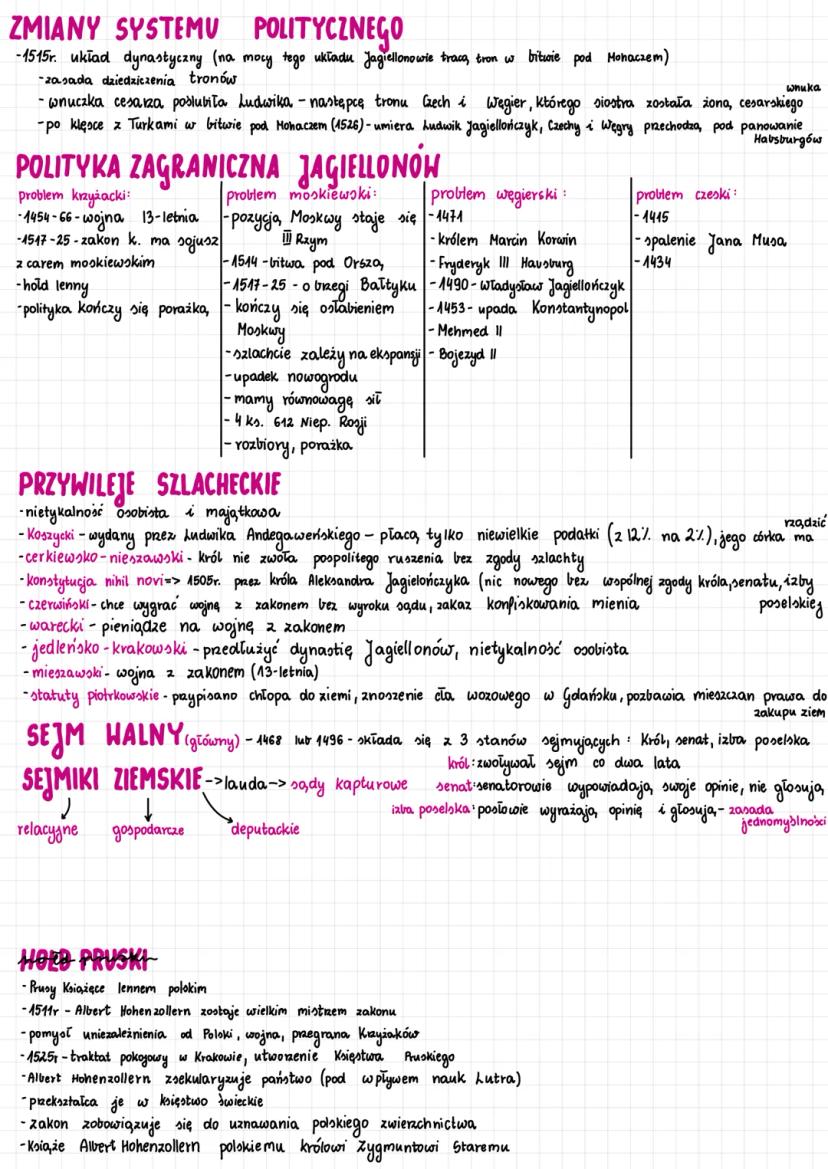 ZMIANY SYSTEMU POLITYCZNEGO
-1515r. układ dynastyczny (na mocy tego układu Jagiellonowie tracą tron w bitwie pod Mohaczem)
-zasada dziedziczenia tronów
-wnuczka cesarza poślubiła Ludwika - następcę tronu Czech i Węgier, którego siostra została żoną cesarskiego wnuka
-po klęsce z Turkami w bitwie pod Mohaczem (1526)-umiera Ludwik Jagiellończyk, Czechy i Węgry przechodzą pod panowanie Habsburgów
POLITYKA ZAGRANICZNA JAGIELLONÓW
problem krzyżacki:
-1454-66-wojna 13-letnia
-1517-25-zakon k. ma sojusz
z carem moskiewskim
-hołd lenny
-polityka kończy się porażką
problem moskiewski:
-pozycja Moskwy staje się
III Rzym
-1514-bitwa pod Orszą
-1517-25 - o brzegi Bałtyku
- kończy się osłabieniem
Moskwy
-szlachcie zależy na ekspansji
-upadek nowogrodu
-mamy równowagę sił
- 4 ks. 612 Niep. Rosji
- rozbiory, porażka
problem węgierski:
-1471
-królem Marcin Korwin
-Fryderyk III Havsburg
-1490-Władysław Jagiellończyk
-1453-upada Konstantynopol
-Mehmed II
- Bojezyd II
problem czeski:
-1415
-spalenie Jana Musa
-1434
PRZYWILEJE SZLACHECKIE
-nietykalność osobista i majątkowa
-Koszycki-wydany przez Ludwika Andegaweńskiego - płacą tylko niewielkie podatki (z 12% na 2%), jego córka ma rządzić
-cerkiewsko-nieszawski- król nie zwoła pospolitego ruszenia bez zgody szlachty
-konstytucja nihil novi=> 1505r. przez króla Aleksandra Jagielończyka (nic nowego bez wspólnej zgody króla, senatu, izby poselskiej
-czerwiński-chce wygrać wojnę z zakonem bez wyroku sądu, zakaz konfiskowania mienia
-warecki- pieniądze na wojnę z zakonem
- jedleńsko-krakowski-przedłużyć dynastię Jagiellonów, nietykalność osobista
-mieszawski- wojna z zakonem (13-letnia)
-statuty piotrkowskie-przypisano chłopa do ziemi, znoszenie cła wozowego w Gdańsku, pozbawia mieszczan prawa do zakupu ziem
SEJM WALNY (główny) - 1468 lub 1496-składa się z 3 stanów sejmujących: Król, senat, izba poselska
król: zwoływał sejm co dwa lata
SEJMIKI ZIEMSKIE->lauda->sądy kapturowe
senat:senatorowie wypowiadają swoje opinie, nie głosują
izba poselska:posłowie wyrażają opinię i głosują-zasada jednomyślności
relacyjne gospodarcze deputackie
HOŁD PRUSKI
-Prusy Książęce lennem polskim
-1511r - Albert Hohenzollern zostaje wielkim mistrzem zakonu
-pomysł uniezależnienia od Polski, wojna, przegrana Krzyżaków
-1525r-traktat pokojowy w Krakowie, utworzenie Księstwa Pruskiego
-Albert Hohenzollern zsekularyzuje państwo (pod wpływem nauk Lutra)
-przekształca je w księstwo świeckie
-zakon zobowiązuje się do uznawania polskiego zwierzchnictwa
-Książe Albert Hohenzollern polskiemu królowi Zygmuntowi Staremu